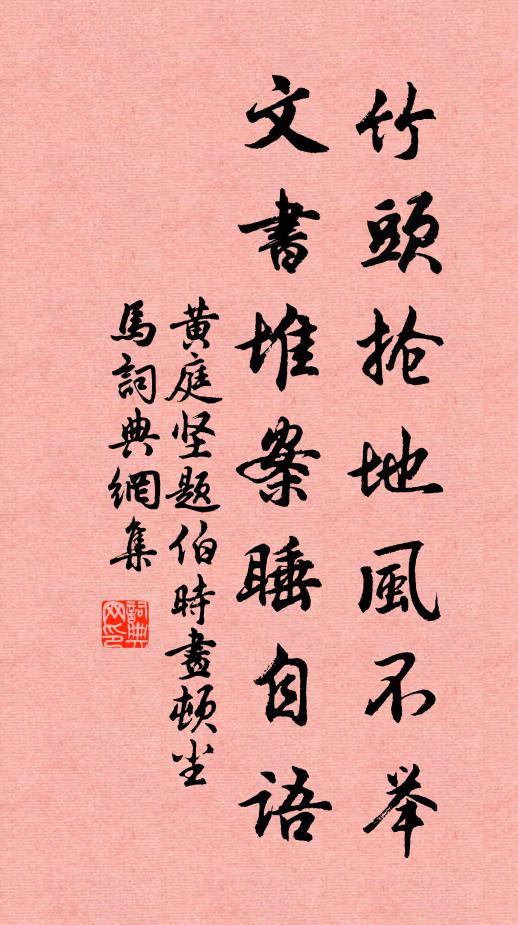 竹頭抢地風不举
文書堆案睡自語
黄庭坚题伯時畫頓尘
馬詞典網集
詞典
网印